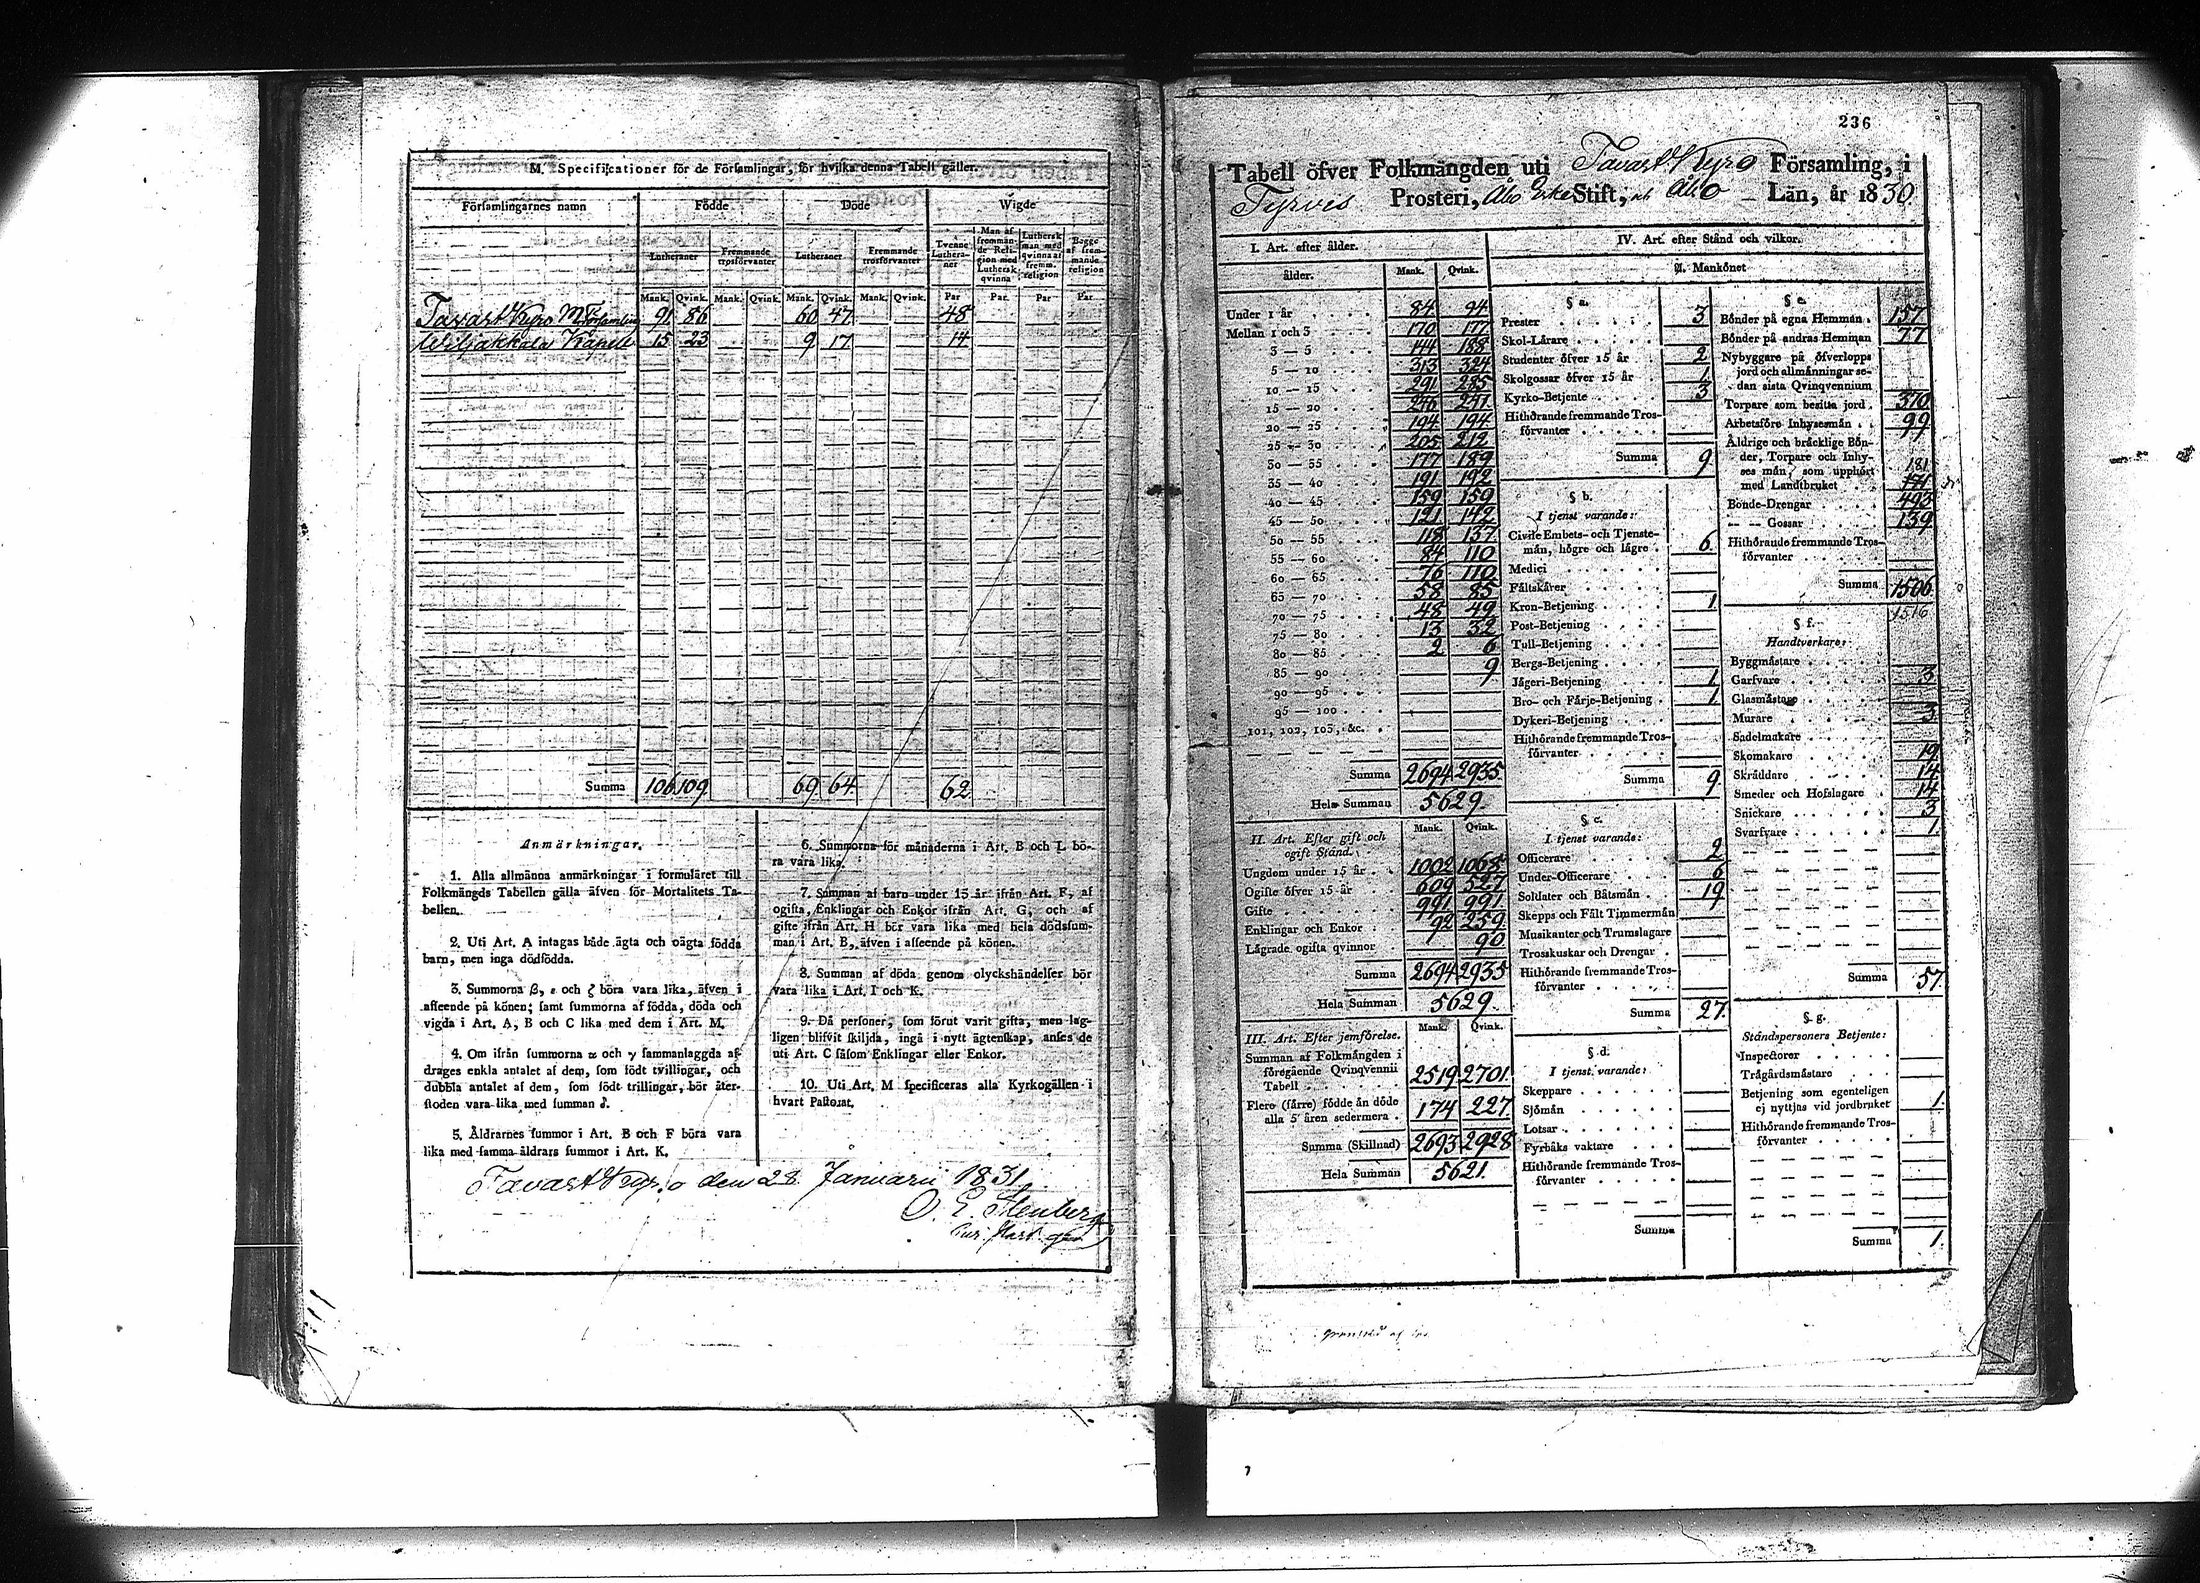 M. Specificationer för de Församlingar, för hvilka denna Tabell gäller.
Församlingarnes namn Födde Döde Wigde
Lutheraner Fremmande trosförvanter Lutheraner Fremmande trosförvanter Tvenne Lutheraner Man af fremmande Religion med Luthersk qvinna Luthersk man med qvinna af fremm. religion Begge af fremmande religion
Mank. Qvink. Mank. Qvink. Mank. Qvink. Mank. Qvink. Par Par. Par Par
Tavast Kyro M. Församlin 91 86 60 47 48
Wiljakkala Kapell 15 23 9 17 14
Summa 106 109 69 64 62
Anmärkningar.
1. Alla allmänna anmärkningar i formuläret till
Folkmängds Tabellen gälla äfven för Mortalitets Ta-
bellen.
2. Uti Art. A intagas både ägta och oägta födda
barn, men inga dödfödda.
3. Summorna β, ε och ζ böra vara lika, äfven i
afseende på könen; samt summorna af födda, döda och
vigda i Art. A, B och C lika med dem i Art. M.
4. Om ifrån summorna α och γ sammanlaggda af-
drages enkla antalet af dem, som födt tvillingar, och
dubbla antalet af dem, som födt trillingar, bör åter-
stoden vara lika med summan δ.
5. Åldrarnes summor i Art. B och F böra vara
lika med samma åldrars summor i Art. K.
6. Summorna för månaderna i Art. B och L bö-
ra vara lika.
7. Summan af barn under 15 år ifrån Art. F, af
ogifta, Enklingar och Enkor ifrån Art. G, och af
gifte ifrån Art. H bör vara lika med hela dödssum-
man i Art. B, äfven i afseende på könen.
8. Summan af döda genom olyckshändelser bör
vara lika i Art. I och K.
9. Då personer, som förut varit gifta, men lag-
ligen blifvit skiljda, ingå i nytt ägtenskap, anses de
uti Art. C såsom Enklingar eller Enkor.
10. Uti Art. M specificeras alla Kyrkogällen i
hvart Pastorat.
Tavast Kyro den 28 Januarii 1831
O. E. Stenberg
236
Tabell öfver Folkmängden uti Tavast Kyro Församling, i
Tyrvis Prosteri, Åbo Erke Stift, och Åbo Län, år 1830.
I. Art. efter ålder.
ålder. Mank. Qvink.
Under 1 år 84 94
Mellan 1 och 3 170 177
3 — 5 144 188
5 — 10 313 324
10 — 15 291 285
15 — 20 246 241
20 — 25 194 194
25 — 30 205 212
30 — 35 177 189
35 — 40 191 192
40 — 45 159 159
45 — 50 121 142
50 — 55 118 137
55 — 60 84 110
60 — 65 76 110
65 — 70 58 85
70 — 75 48 49
75 — 80 13 32
80 — 85 2 6
85 — 90 9
90 — 95
95 — 100
101, 102, 103, &c.
Summa 2694 2935
Hela Summan 5629.
II. Art. Efter gift och ogift Stånd. Mank. Qvink.
Ungdom under 15 år 1002 1068
Ogifte öfver 15 år 609 527
Gifte 991 991
Enklingar och Enkor 92 259
Lägrade ogifta qvinnor 90
Summa 2694 2935
Hela Summan 5629.
III. Art. Efter jemförelse. Mank. Qvink.
Summan af Folkmängden i
föregående Qvinqvennii
Tabell 2519 2701
Flere (färre) födde än döde
alla 5 åren sedermera 174 227
Summa (Skillnad) 2693 2928
Hela Summan 5621.
IV. Art. efter Stånd och vilkor.
Ø. Mankönet
§ a.
Prester 3
Skol-Lärare
Studenter öfver 15 år 2
Skolgossar öfver 15 år 1
Kyrko-Betjente 3
Hithörande fremmande Tros-
förvanter
Summa 9
§ b.
I tjenst varande:
Civile Embets- och Tjenste-
män, högre och lägre 6
Medici
Fältskärer
Kron-Betjening 1
Post-Betjening
Tull-Betjening
Bergs-Betjening
Jägeri-Betjening 1
Bro- och Färje-Betjening 1
Dykeri-Betjening
Hithörande fremmande Tros-
förvanter
Summa 9.
§ c.
I tjenst varande:
Officerare 2
Under-Officerare 6
Soldater och Båtsmän 19
Skepps och Fält Timmermän
Musikanter och Trumslagare
Trosskuskar och Drengar
Hithörande fremmande Tros-
förvanter
Summa 27.
§ d.
I tjenst varande:
Skeppare
Sjömän
Lotsar
Fyrbåks vaktare
Hithörande fremmande Tros-
förvanter
Summa
§ e.
Bönder på egna Hemman 157
Bönder på andras Hemman 77
Nybyggare på öfverlopps
jord och allmänningar se-
dan sista Qvinqvennium
Torpare som besitta jord 370
Arbetsföre Inhysesmän 99
Åldrige och bräcklige Bön-
der, Torpare och Inhy-
ses män, som upphört
med Landtbruket 181 171
Bonde-Drengar 493
— — Gossar 139
Hithörande fremmande Tros-
förvanter
Summa 1506
1516
§ f.
Handtverkare:
Byggmästare
Garfvare 3
Glasmästare
Murare 3
Sadelmakare
Skomakare 19
Skräddare 14
Smeder och Hofslagare 14
Snickare 3
Svarfvare 1
Summa 57.
§ g.
Ståndspersoners Betjente:
Inspectorer
Trägårdsmästare
Betjening som egenteligen
ej nyttjas vid jordbruket 1
Hithörande fremmande Tros-
förvanter
Summa 1.